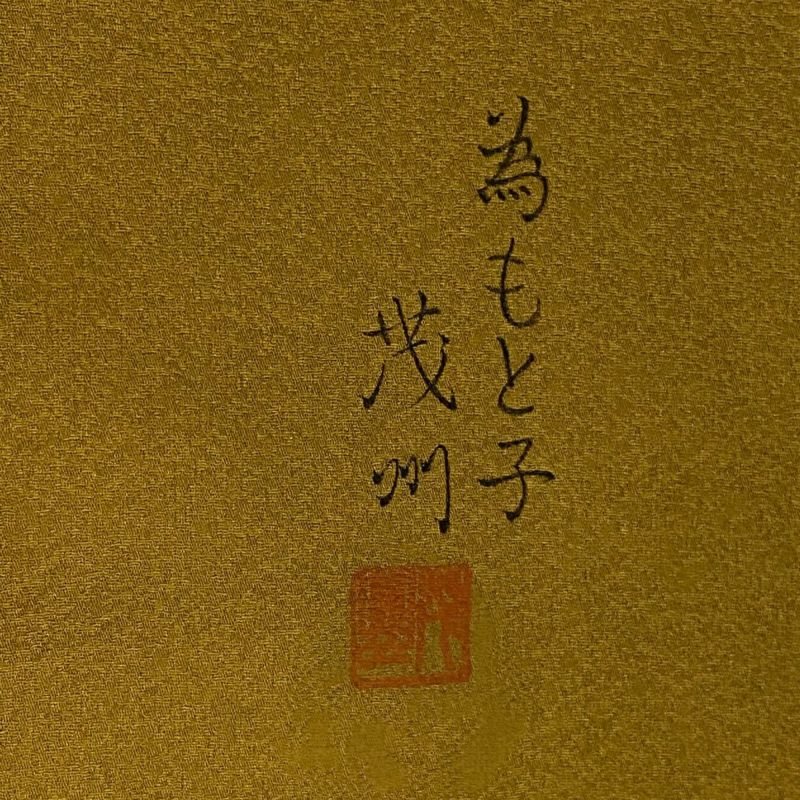 為もと子
茂州